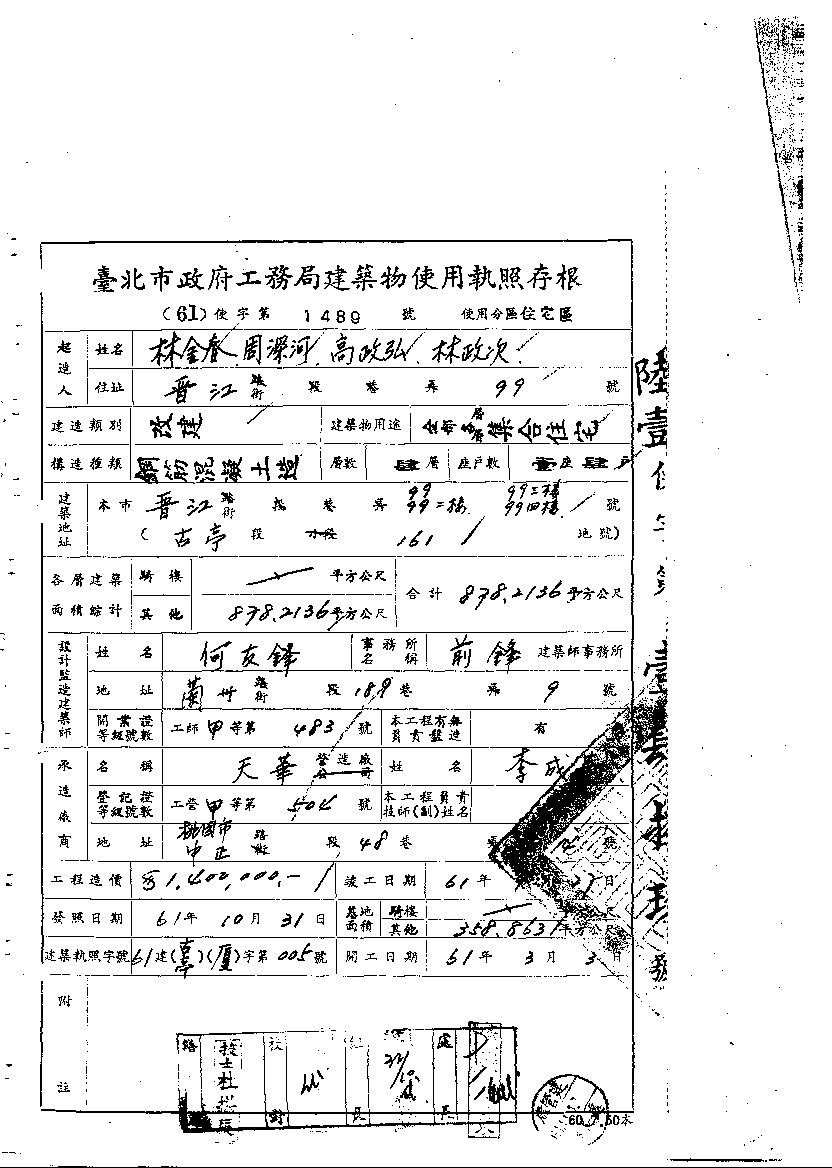 臺北市政府工務局建築物使用執照存根
(61)使字第 1489 號 使用分區住宅區
起造人 姓名 周深河 高政弘 林政次
住址 晋江 路街 段 巷 弄 99 號
建造類別 改建 建築物用途 全部各層集合住宅
構造種類 鋼筋混凝土造 層數 肆層 座戶數 壹座肆戶
建築地址 本市 晋江 路街 段 巷 弄 99 99二樓 99三樓 99四樓 號
( 古亭 段 小段 161 地號)
各層建築面積綜計 騎樓 平方公尺 合計 878.2136平方公尺
其他 878.2136平方公尺
設計監造建築師 姓名 何友鋒 事務所名稱 前鋒 建築師事務所
地址 蘭州 路街 段 189巷 弄 9 號
開業證等級號數 工師甲等第 483 號 本工程有無負責監造 有
承造廠商 名稱 天華 營造廠公司 姓名 李成
登記證等級號數 工營甲等第 號 本工程負責技師(副)姓名
地址 桃園市中正 路街 段 48巷 號
工程造價 1,400,000,- 竣工日期 61年 日
發照日期 61年 10月 31日 基地面積 騎樓
其他 358.8631平方公尺
建築執照字號 61建( )(厦)字第005號 開工日期 61年 3月 3日
附註
校對 組長 處長
陸壹使字第壹
號
60. 7. 50本